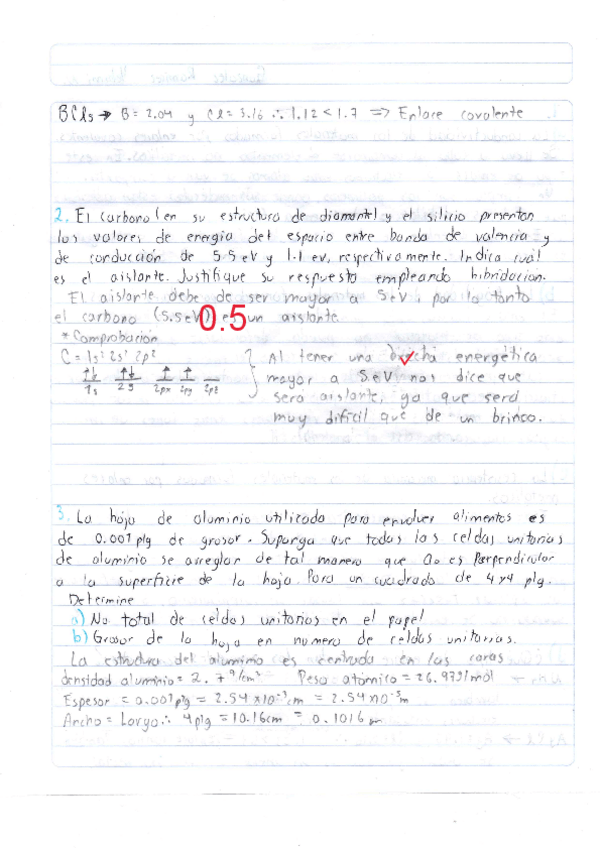 BCl3 → B = 2.04 y Cl = 3.16 ∴ 1.12 < 1.7 => Enlace covalente
2. El carbono (en su estructura de diamante) y el silicio presentan
los valores de energia del espacio entre banda de valencia y
de conducción de 5.5 eV y 1.1 ev, respectivamente. Indica cuál
es el aislante. Justifique su respuesta empleando hibridacion.
El aislante debe de ser mayor a 5 eV, por lo tanto
el carbono (5.5eV) es un aislante.
0.5
* Comprobación
C = 1s² 2s² 2p²
1s 2s 2px 2py 2pz
Al tener una brecha energética
mayor a 5 eV nos dice que
sera aislante, ya que será
muy dificil que de un brinco.
3. La hoja de aluminio utilizada para envolver alimentos es
de 0.001 plg de grosor. Suponga que todas las celdas unitarias
de aluminio se arreglan de tal manera que a₀ es perpendicular
a la superficie de la hoja. Para un cuadrado de 4x4 plg.
Determine
a) No total de celdas unitarias en el papel
b) Grosor de la hoja en numero de celdas unitarias.
La estructura del aluminio es centrada en las caras
densidad aluminio = 2.7 g/cm³ Peso atómico = 26.97 g/mol
Espesor = 0.001 plg = 2.54 x10⁻³ cm = 2.54 x10⁻⁵ m
Ancho = Largo ∴ 4 plg = 10.16 cm = 0.1016 m